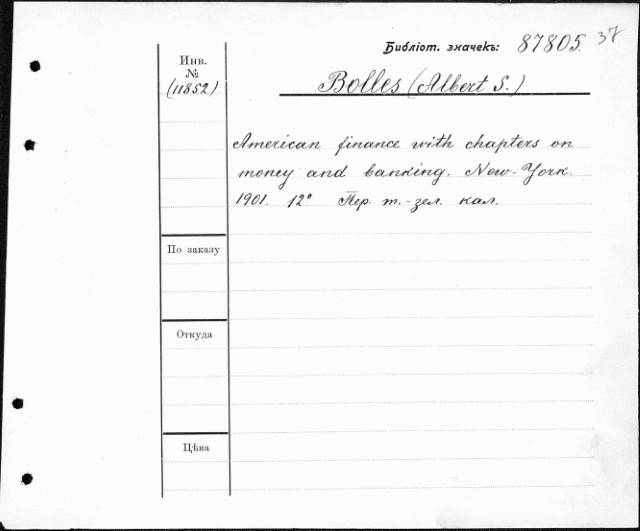 Библіот. значекъ: 87805. 37
Инв.
№
(11852)
Bolles (Albert S.)
American finance with chapters on
money and banking. New-York.
1901. 12° Пер. т.-зел. кал.
По заказу
Откуда
Цѣна